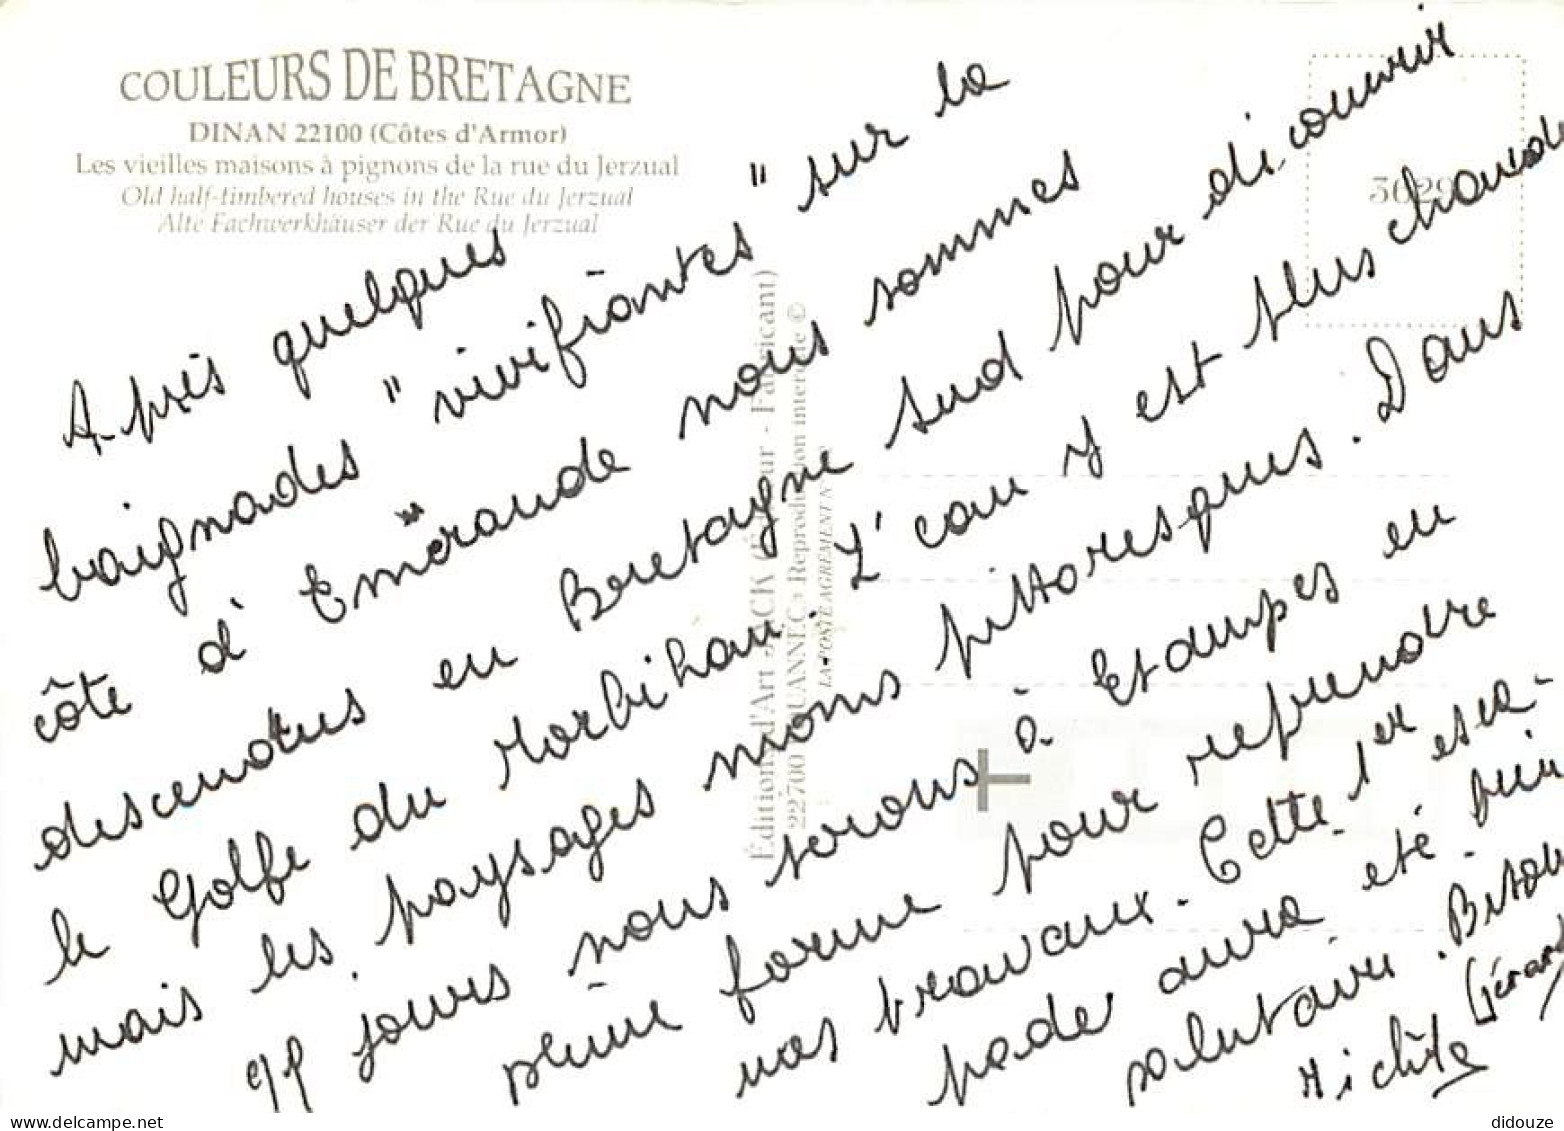 COULEURS DE BRETAGNE
DINAN 22100 (Côtes d'Armor)
Les vieilles maisons à pignons de la rue du Jerzual
Old half-timbered houses in the Rue du Jerzual
Alte Fachwerkhäuser der Rue du Jerzual
Après quelques
baignades "vivifiantes" sur la
côte d'Emeraude nous sommes
descendus en Bretagne sud pour découvrir
le Golfe du Morbihan. L'eau y est plus chaude
mais les paysages moins pittoresques. Dans
jours nous serons à Etampes en
pleine forme pour reprendre
nos travaux. Cette 1er esca-
pade aura été bien
salutaire. Bisous
Gérard
Editions d'Art JACK (Éditeur - Fabricant)
22700 LOUANNEC Reproduction interdite ©
LA POSTE AGRÉMENT N°
delcampe.net
didouze